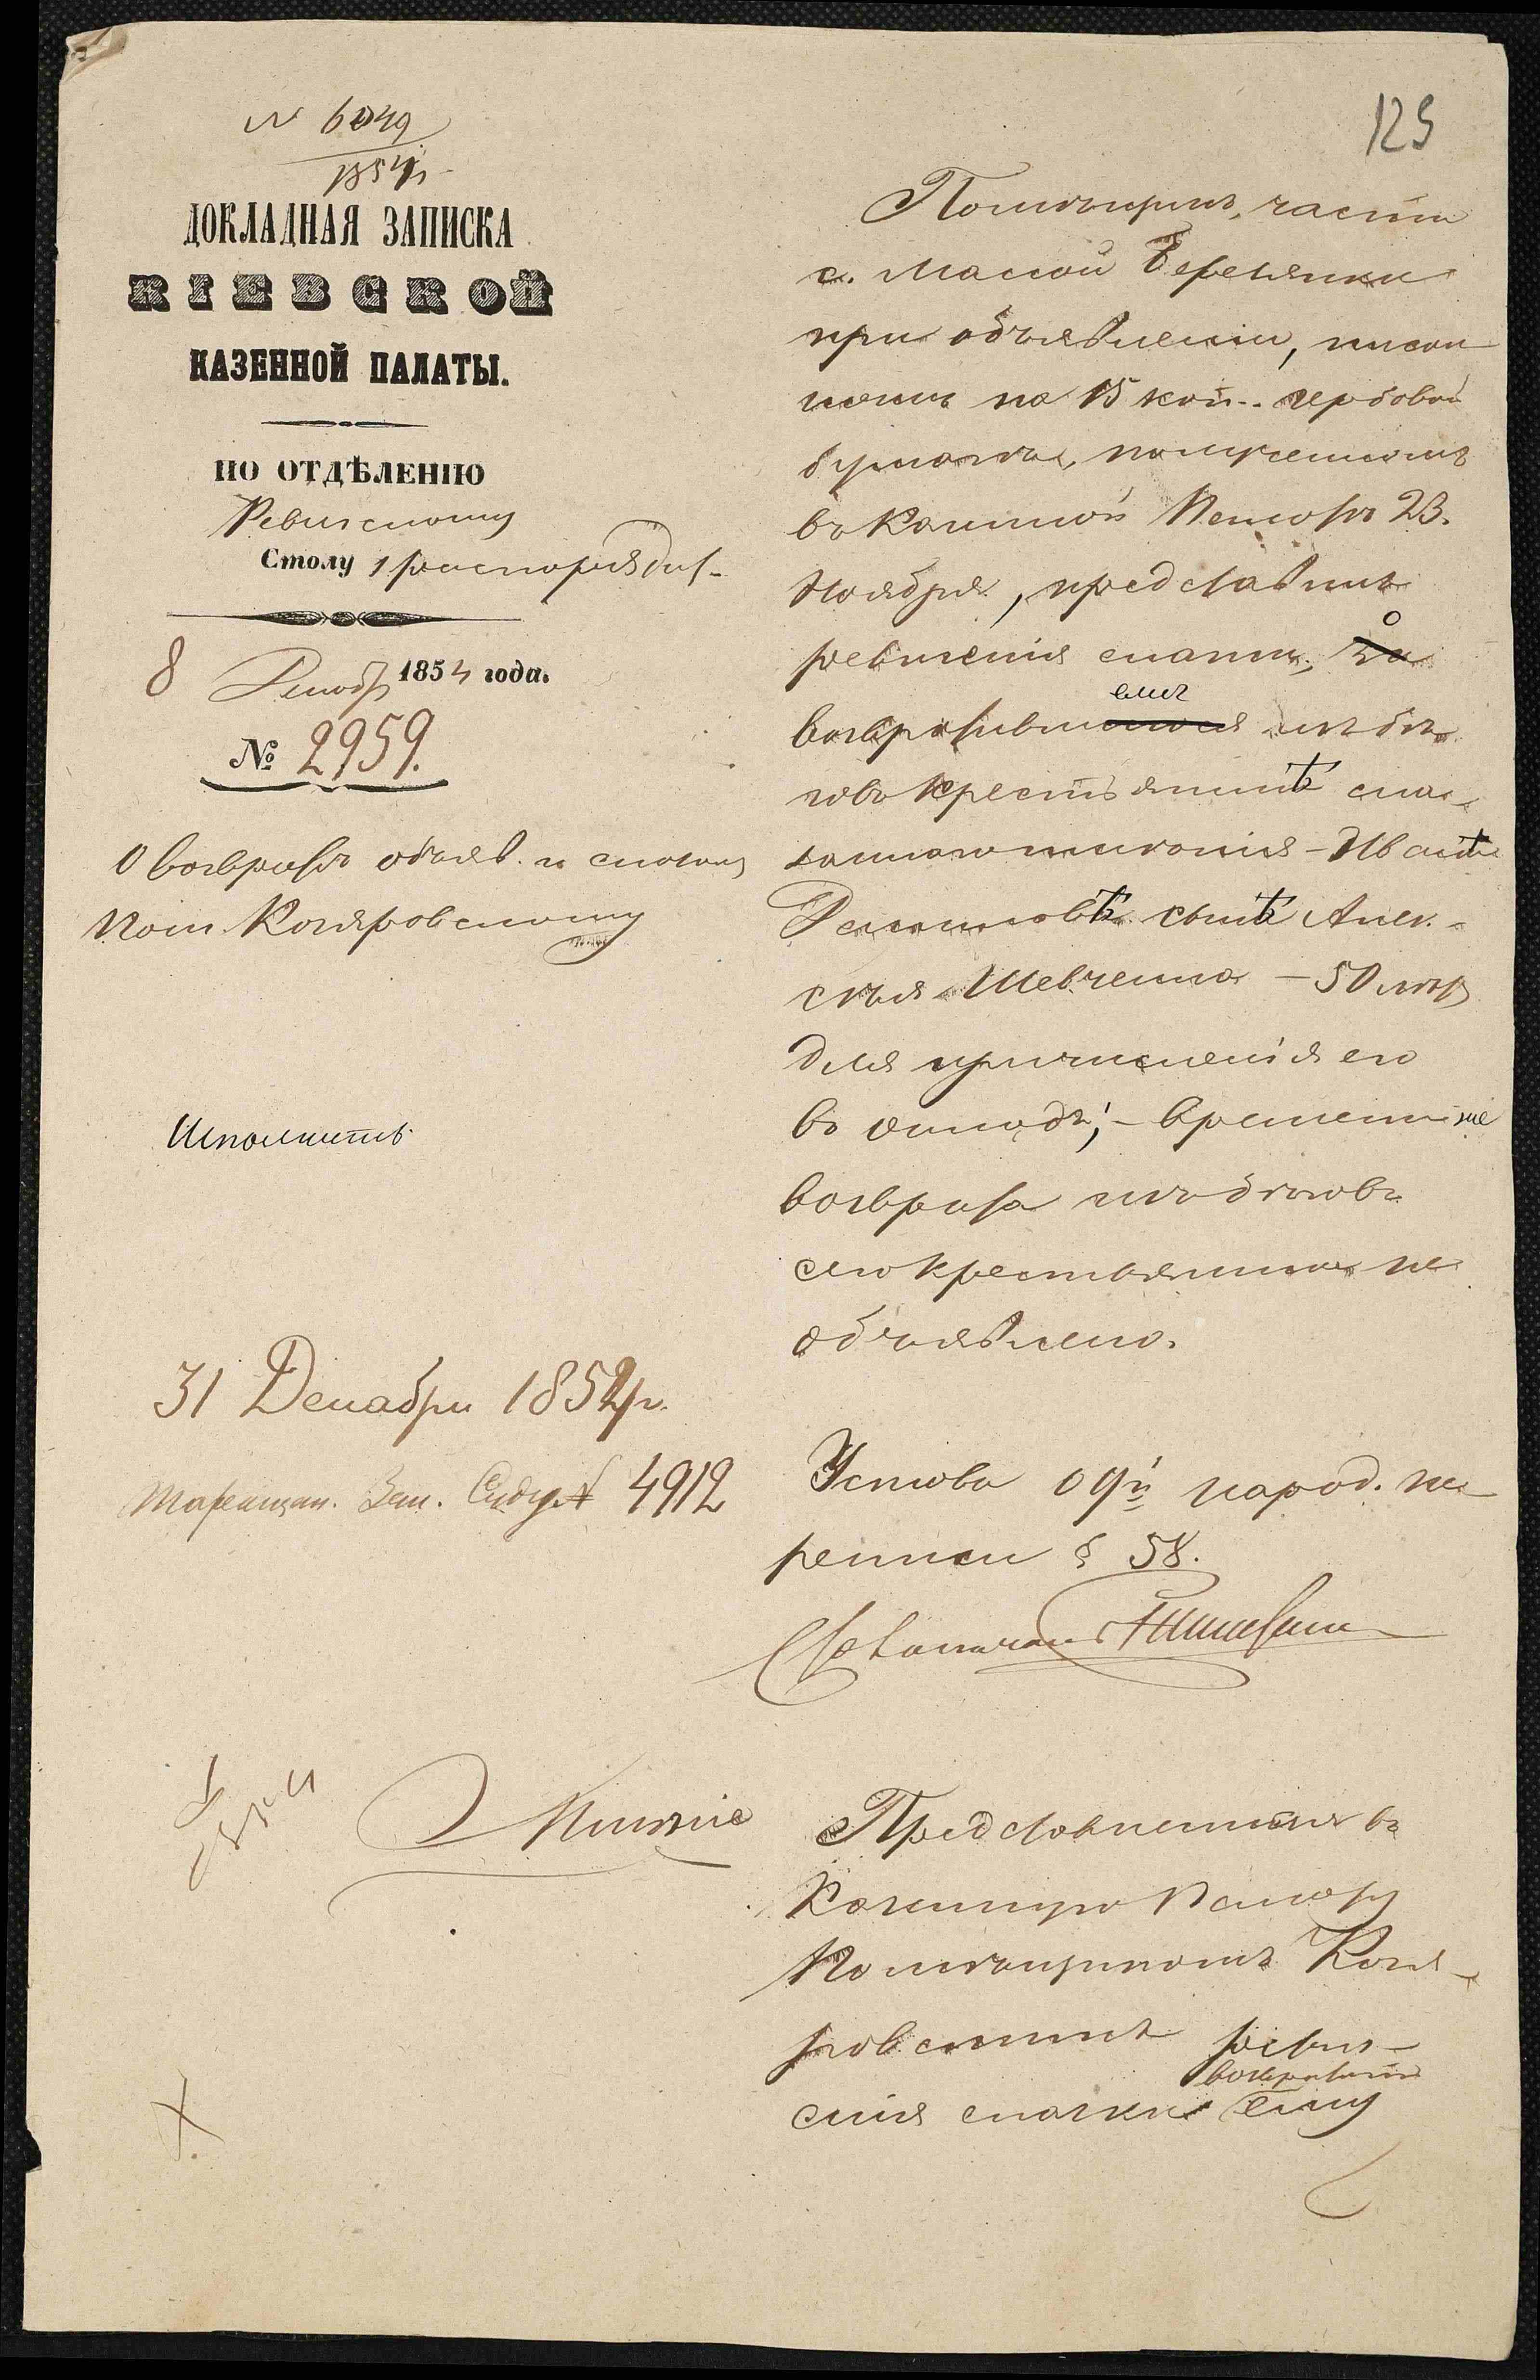 125
N 6049
1854
ДОКЛАДНАЯ ЗАПИСКА
КІЕВСКОЙ
КАЗЕННОЙ ПАЛАТЫ.
ПО ОТДѢЛЕНІЮ
Ревизскому
Столу 1
8 Декабр 1854 года.
№ 2959.
О возвратѣ объяв. и сказки
Пом. Козяровскому
Исполнить
31 Декабря 1854 г.
Таращан. Зем. Суду N 4912
Помѣщикъ части
с. Малой Березянки
при объявленіи, писан
номъ на 15 коп. гербовой
бумагѣ, полученномъ
въ Казенной Палатѣ 23.
Ноября, представилъ
ревизскія сказки, за о
возвратившемся изъ бѣ
говъ крестьянинѣ ска
заннаго имѣнія – Ивана
сынѣ Алек-
сѣя Шевченка – 50 лѣтъ
для причисленія его
въ окладъ; – времени же
возврата изъ бѣговъ
сего крестьянина не
объявлено.
Устава о 9й народ. пе
реписи § 58.
Представленныя въ
Казенную Палату
Помѣщикомъ Козя-
ровскимъ ревиз-
возвратить
скія сказки ему